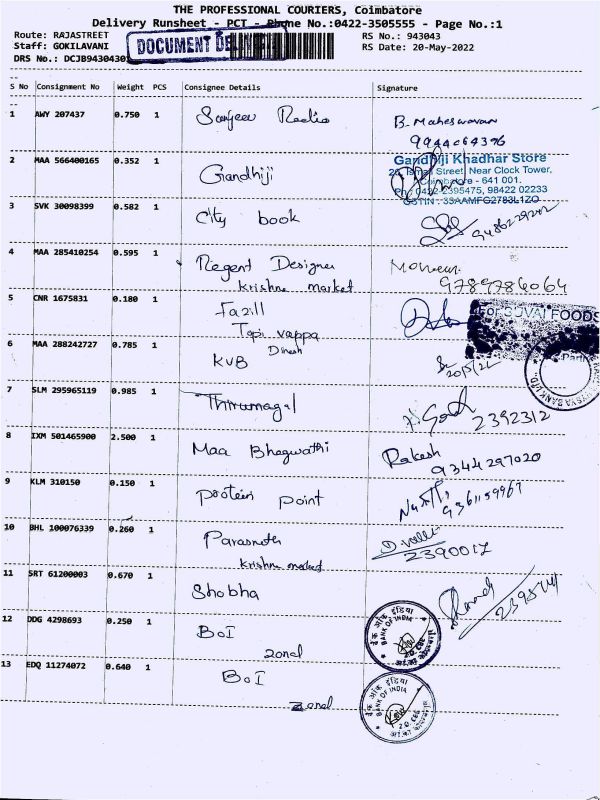 THE PROFESSIONAL COURIERS, Coimbatore
Delivery Runsheet - PCT - Phone No.:0422-3505555 - Page No.:1
Route: RAJASTREET
RS No.: 943043
Staff: GOKILAVANI
DOCUMENT
RS Date: 20-May-2022
DRS No.: DCJB9430430
S No Consignment No Weight PCS Consignee Details Signature
1 AWY 207437 0.750 1 Sanjeev Radio B. Maheswaran
2 MAA 566400165 0.352 1 Gandhiji
Gandhiji Khadhar Store
Street, Near Clock Tower,
Coimbatore - 641 001.
Ph: 0422-2395475, 98422 02233
GSTIN : 33AAMFG2783L1ZO
3 SVK 30098399 0.582 1 City book
4 MAA 285410254 0.595 1 Regent Designer
krishna market 9789786064
5 CNR 1675831 0.180 1 Fazill
Topi vappa
For SUVAI FOODS
6 MAA 288242727 0.785 1 KVB Dinesh
20/5/22
7 SLM 295965119 0.985 1 Thirumagal
2392312
8 IXM 501465900 2.500 1 Maa Bhagwathi Rakesh
9344297020
9 KLM 310150 0.150 1 protein point
9361159967
10 BHL 100076339 0.260 1 Parasnath
krishna market 2390017
11 SRT 61200003 0.670 1 Shobha
12 DDG 4298693 0.250 1 BoI
zonal
बैंक ऑफ इंडिया
BANK OF INDIA
13 EDQ 11274072 0.640 1 BoI
zonal
बैंक ऑफ इंडिया
BANK OF INDIA